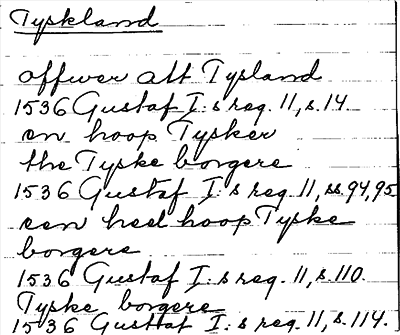 Tyskland
offwer alt Tysland
1536 Gustaf I:s reg. 11, s. 14.
en hoop Tysker
the Tyske borgere
1536 Gustaf I:s reg. 11, ss. 94, 95
een heel hoop Tyske
borgere
1536 Gustaf I:s reg. 11, s. 110.
Tyske borgere
1536 Gustaf I:s reg. 11, s. 114.